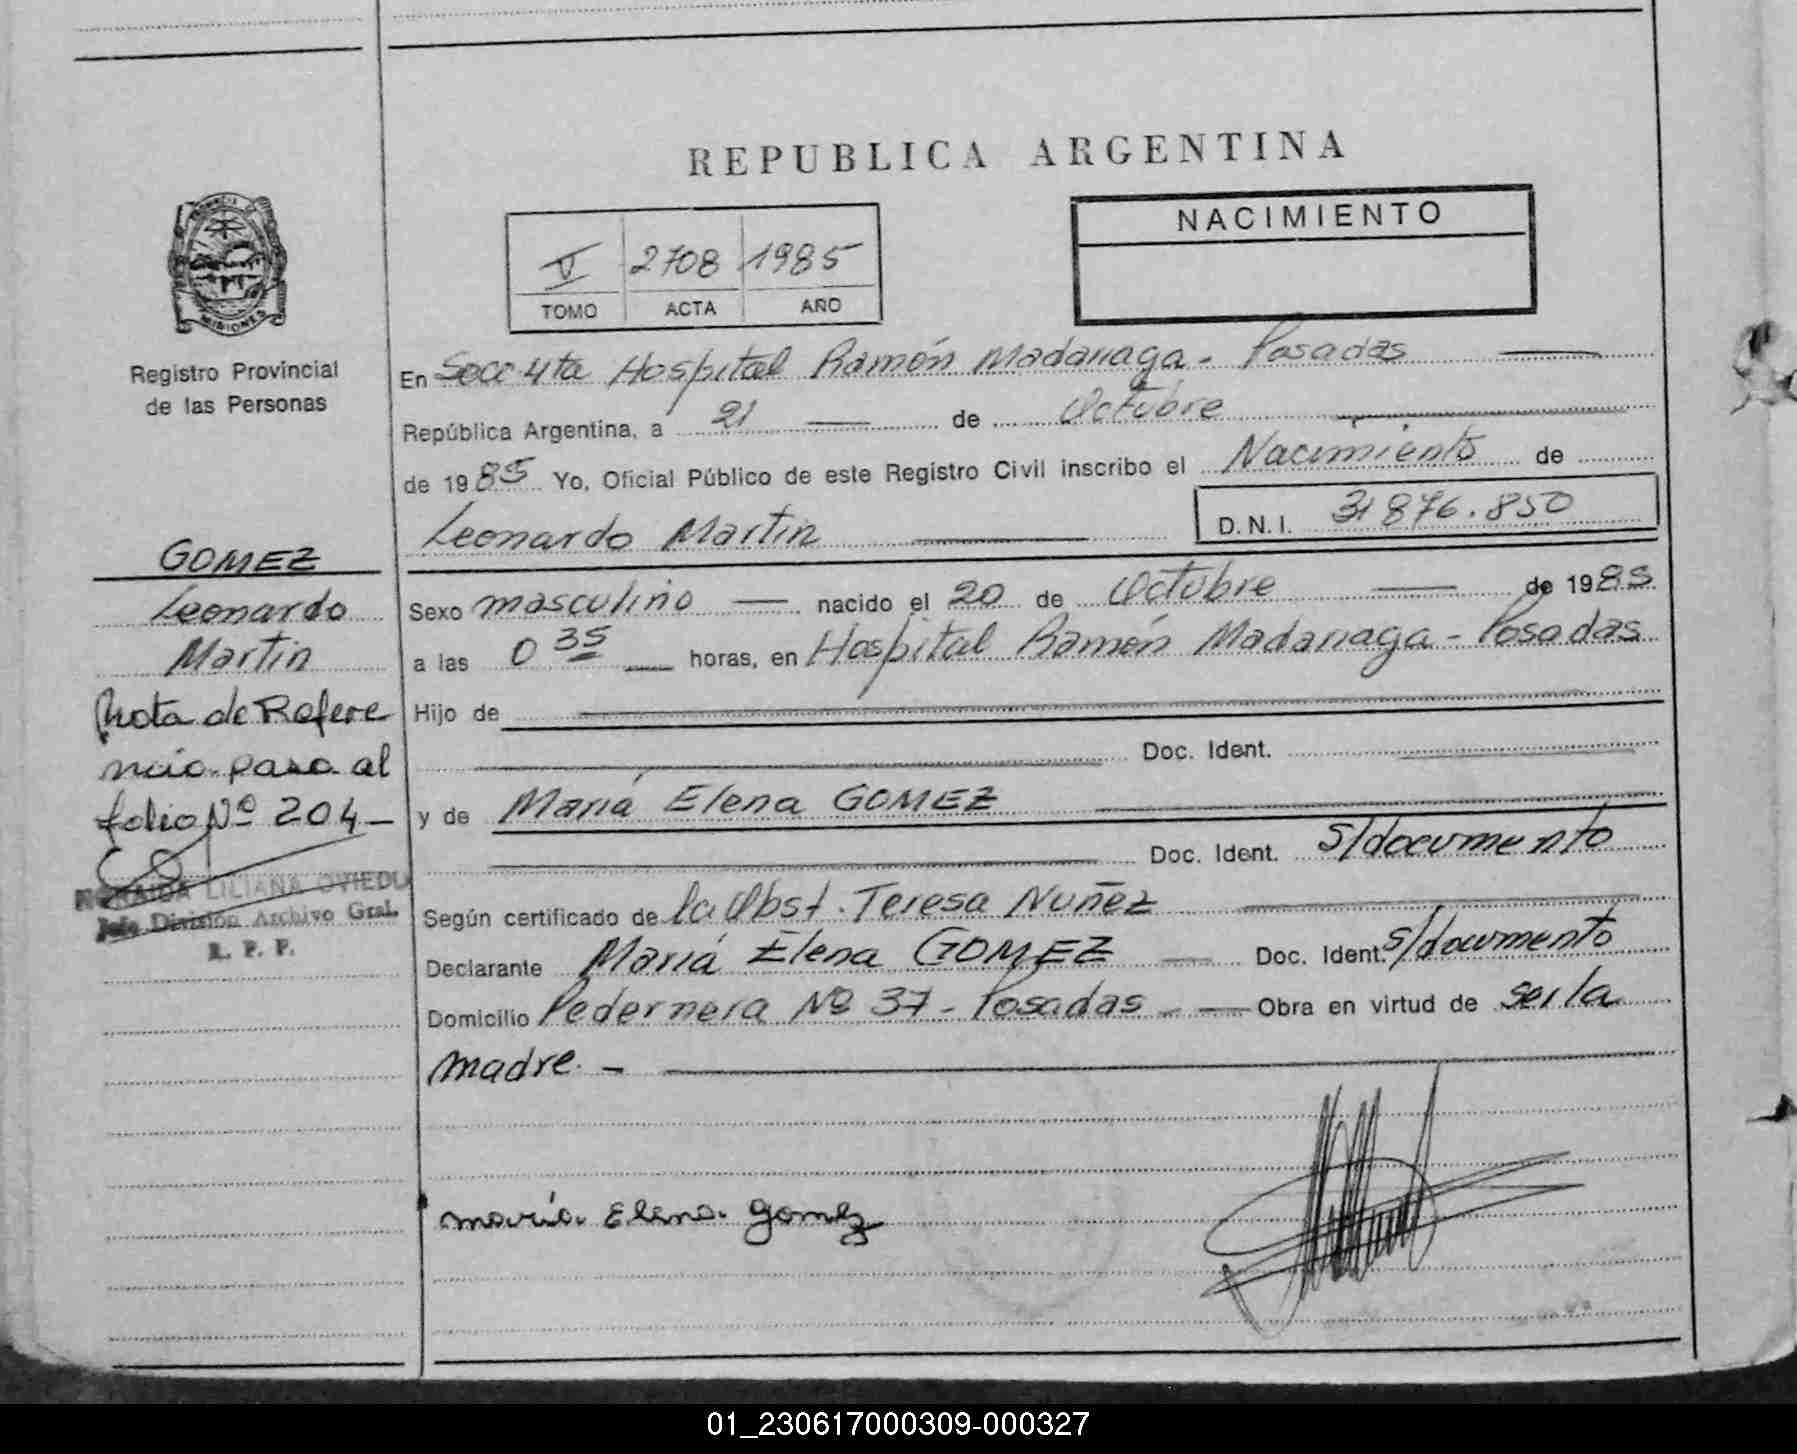 REPUBLICA ARGENTINA
NACIMIENTO
V 2708 1985
TOMO ACTA AÑO
PROVINCIA
MISIONES
Registro Provincial
de las Personas
En Secc 4ta Hospital Ramón Madariaga - Posadas
República Argentina, a 21 de Octubre
de 1985 Yo, Oficial Público de este Registro Civil inscribo el Nacimiento de
Leonardo Martin D.N.I. 31876.850
GOMEZ
Leonardo
Martin
Sexo masculino nacido el 20 de Octubre de 1985
a las 0 35 horas, en Hospital Ramón Madariaga - Posadas
Hijo de
Doc. Ident.
y de María Elena GOMEZ
Doc. Ident. s/documento
Nota de Refere
ncia pasa al
folio Nº 204 -
LILIANA OVIEDO
Jefe División Archivo Gral.
R. P. P.
Según certificado de la Obst. Teresa Nuñez
Declarante María Elena GOMEZ Doc. Ident. s/documento
Domicilio Pedernera Nº 37 - Posadas - Obra en virtud de ser la
madre. -
maria Elena gomez
01_230617000309-000327